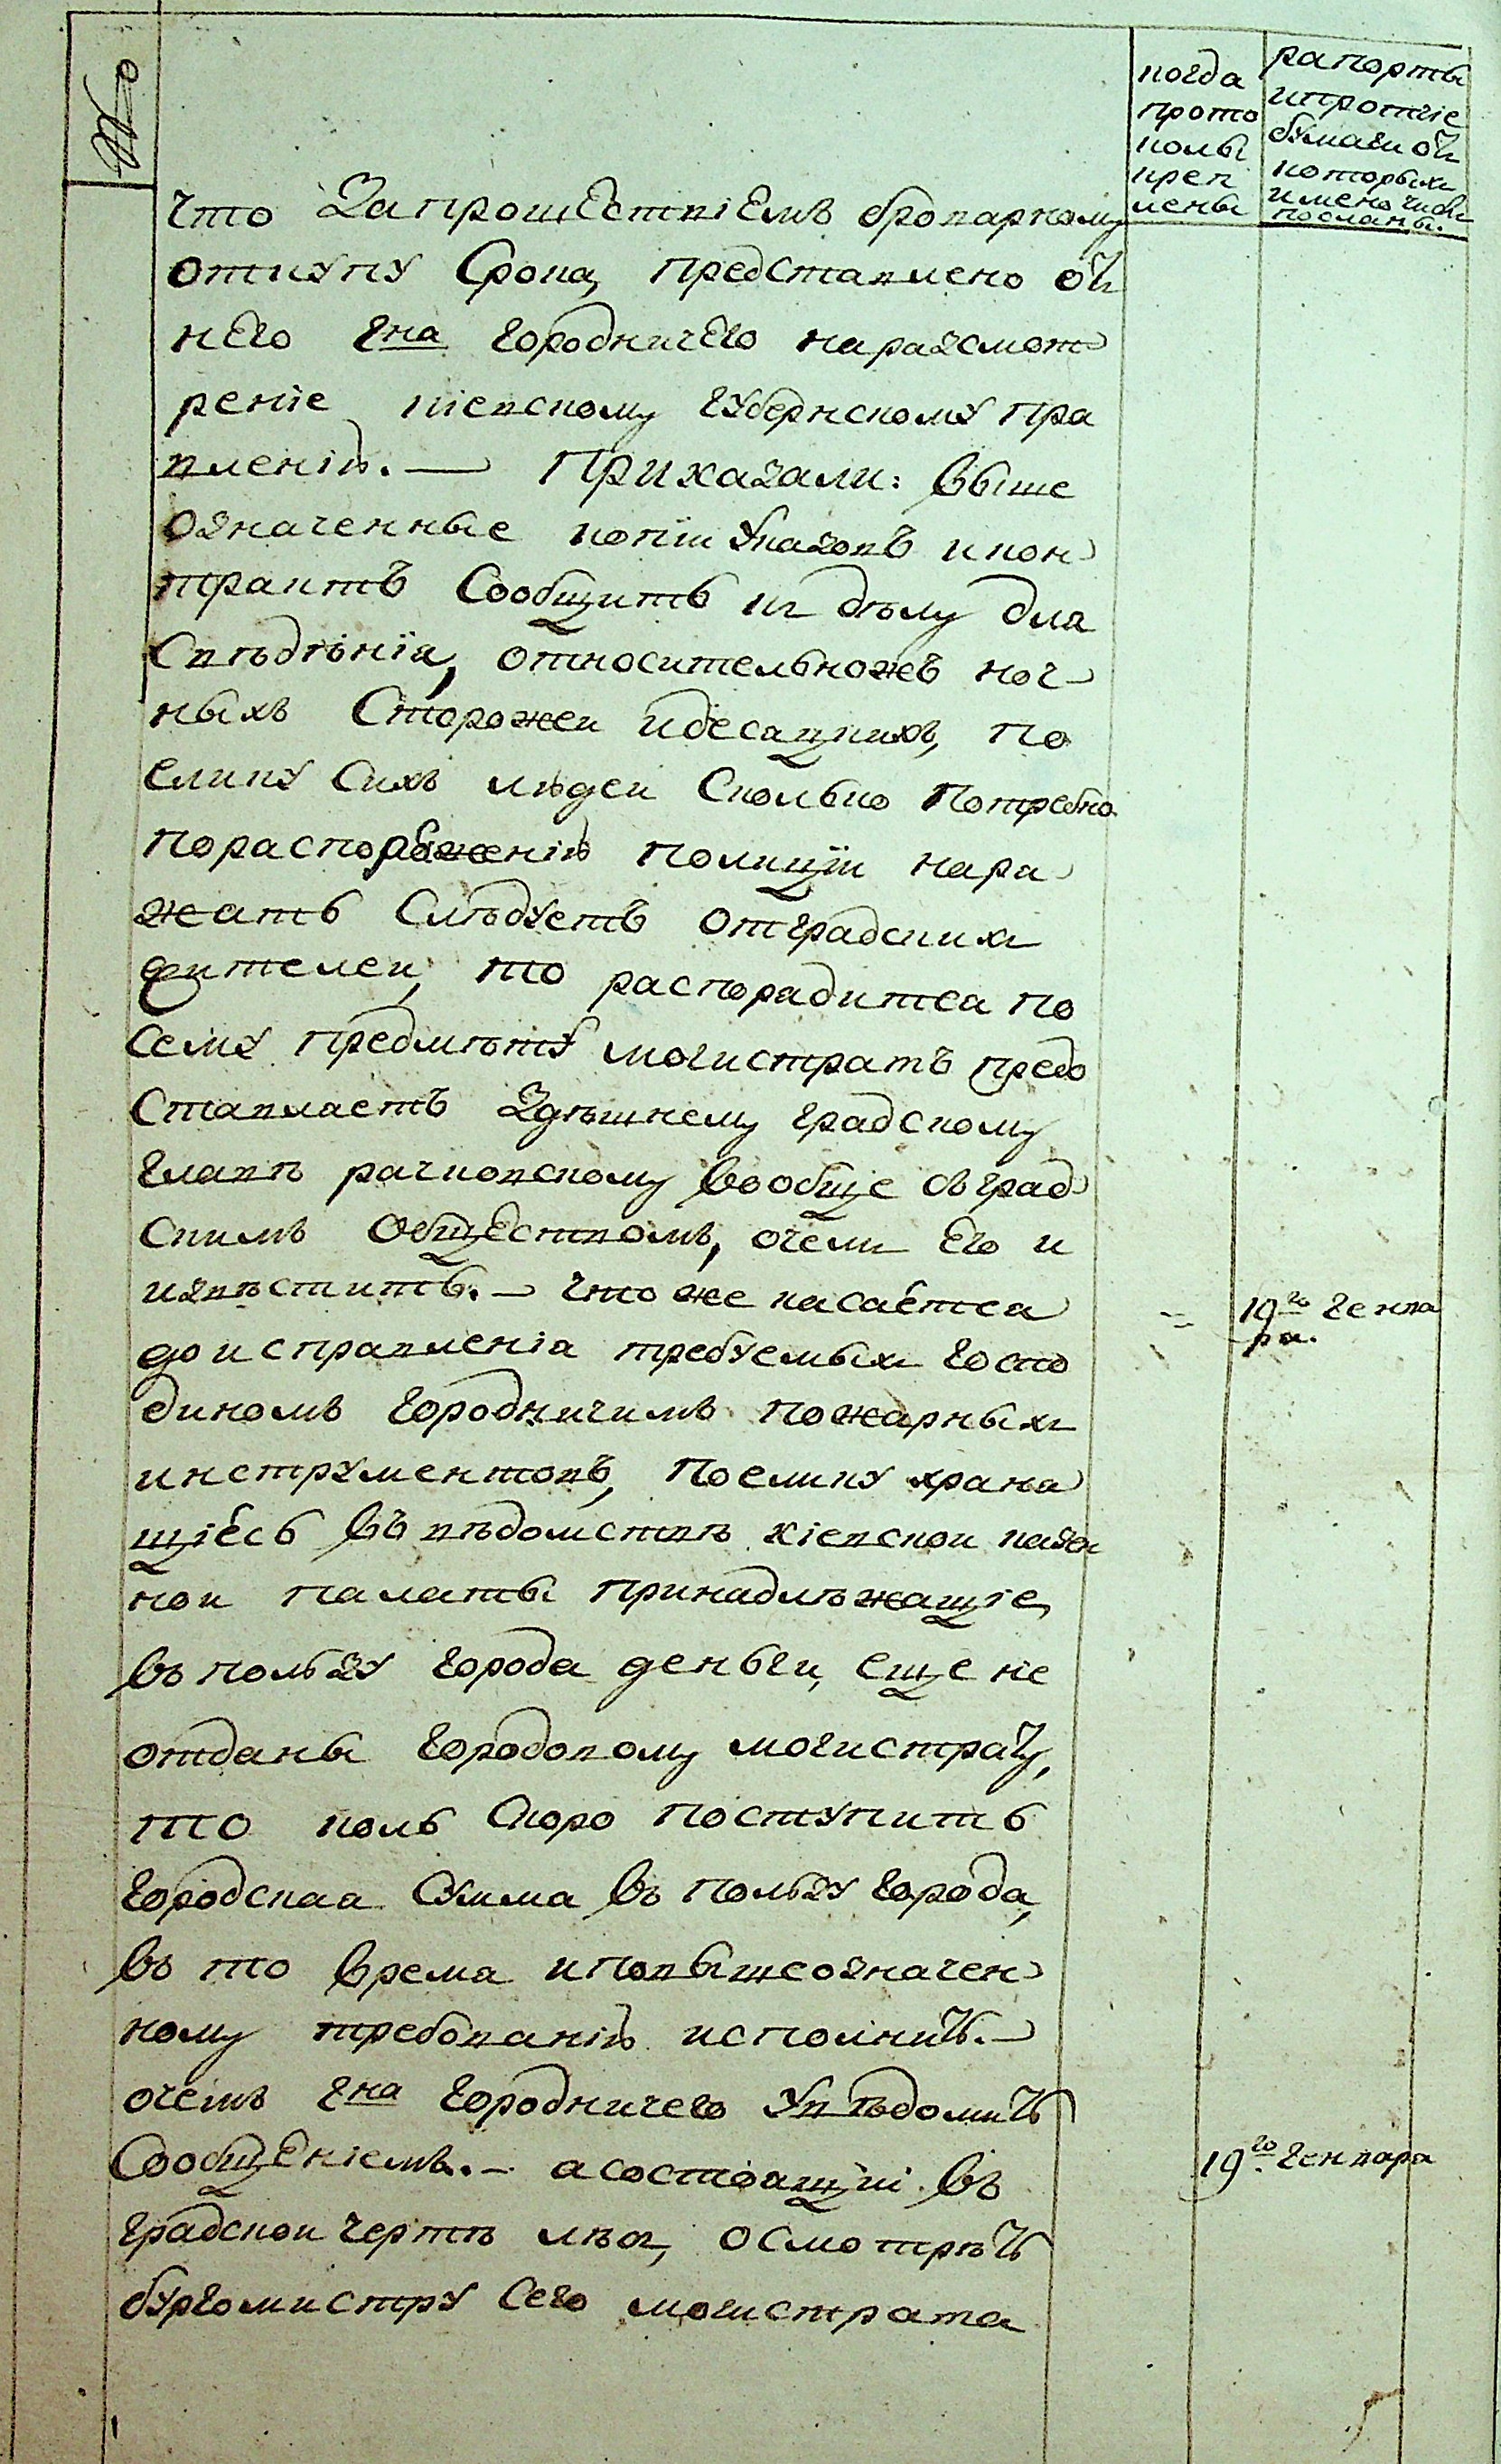 №
когда
прото
колы
креп
лены
рапорты
и протчіе
бумаги отъ
которыхъ
имено числъ
посланы.
что Запрошествіемъ броварному
откупу Срока, представлено отъ
него Гна городничего наразсмот
реніе кіевскому губернскому пра
вленію. — Приказали: выше
означенные копіи Указовъ икон
трактъ Сообщить къ делу для
Сведенія, относительножъ ноч
ныхъ Сторожеи идесацкихъ, по
елику Сихъ людеи Сколько потребно
пораспоряженію полиціи наря
жать Следуетъ отградскихъ
жителеи, то распорядится по
Сему предмету могистратъ предо
Ставляетъ Здешнему градскому
главѣ рачковскому вообще съ град
скимъ Обществомъ, очемъ Его и
извѣстить. — Что же касается
до исправленія требуемыхъ госпо
диномъ городничимъ пожарныхъ
инструментовъ, Поелику храня
щіесь въ вѣдомствѣ кіевскои казен
нои палаты принадлѣжащіе,
въ пользу города деньги, еще не
отданы городовому могистрату,
то коль Скоро поступитъ
городская Сумма въ пользу города,
въ то время иповышеозначен
ному требованію исполнить. —
очемъ Гна городничего Увѣдомить
Сообщеніемъ. — а состоящіи въ
градскои чертѣ лѣсъ, осмотрѣть
бургомистру Сего могистрата
19го генва
ря.
19го Генваря